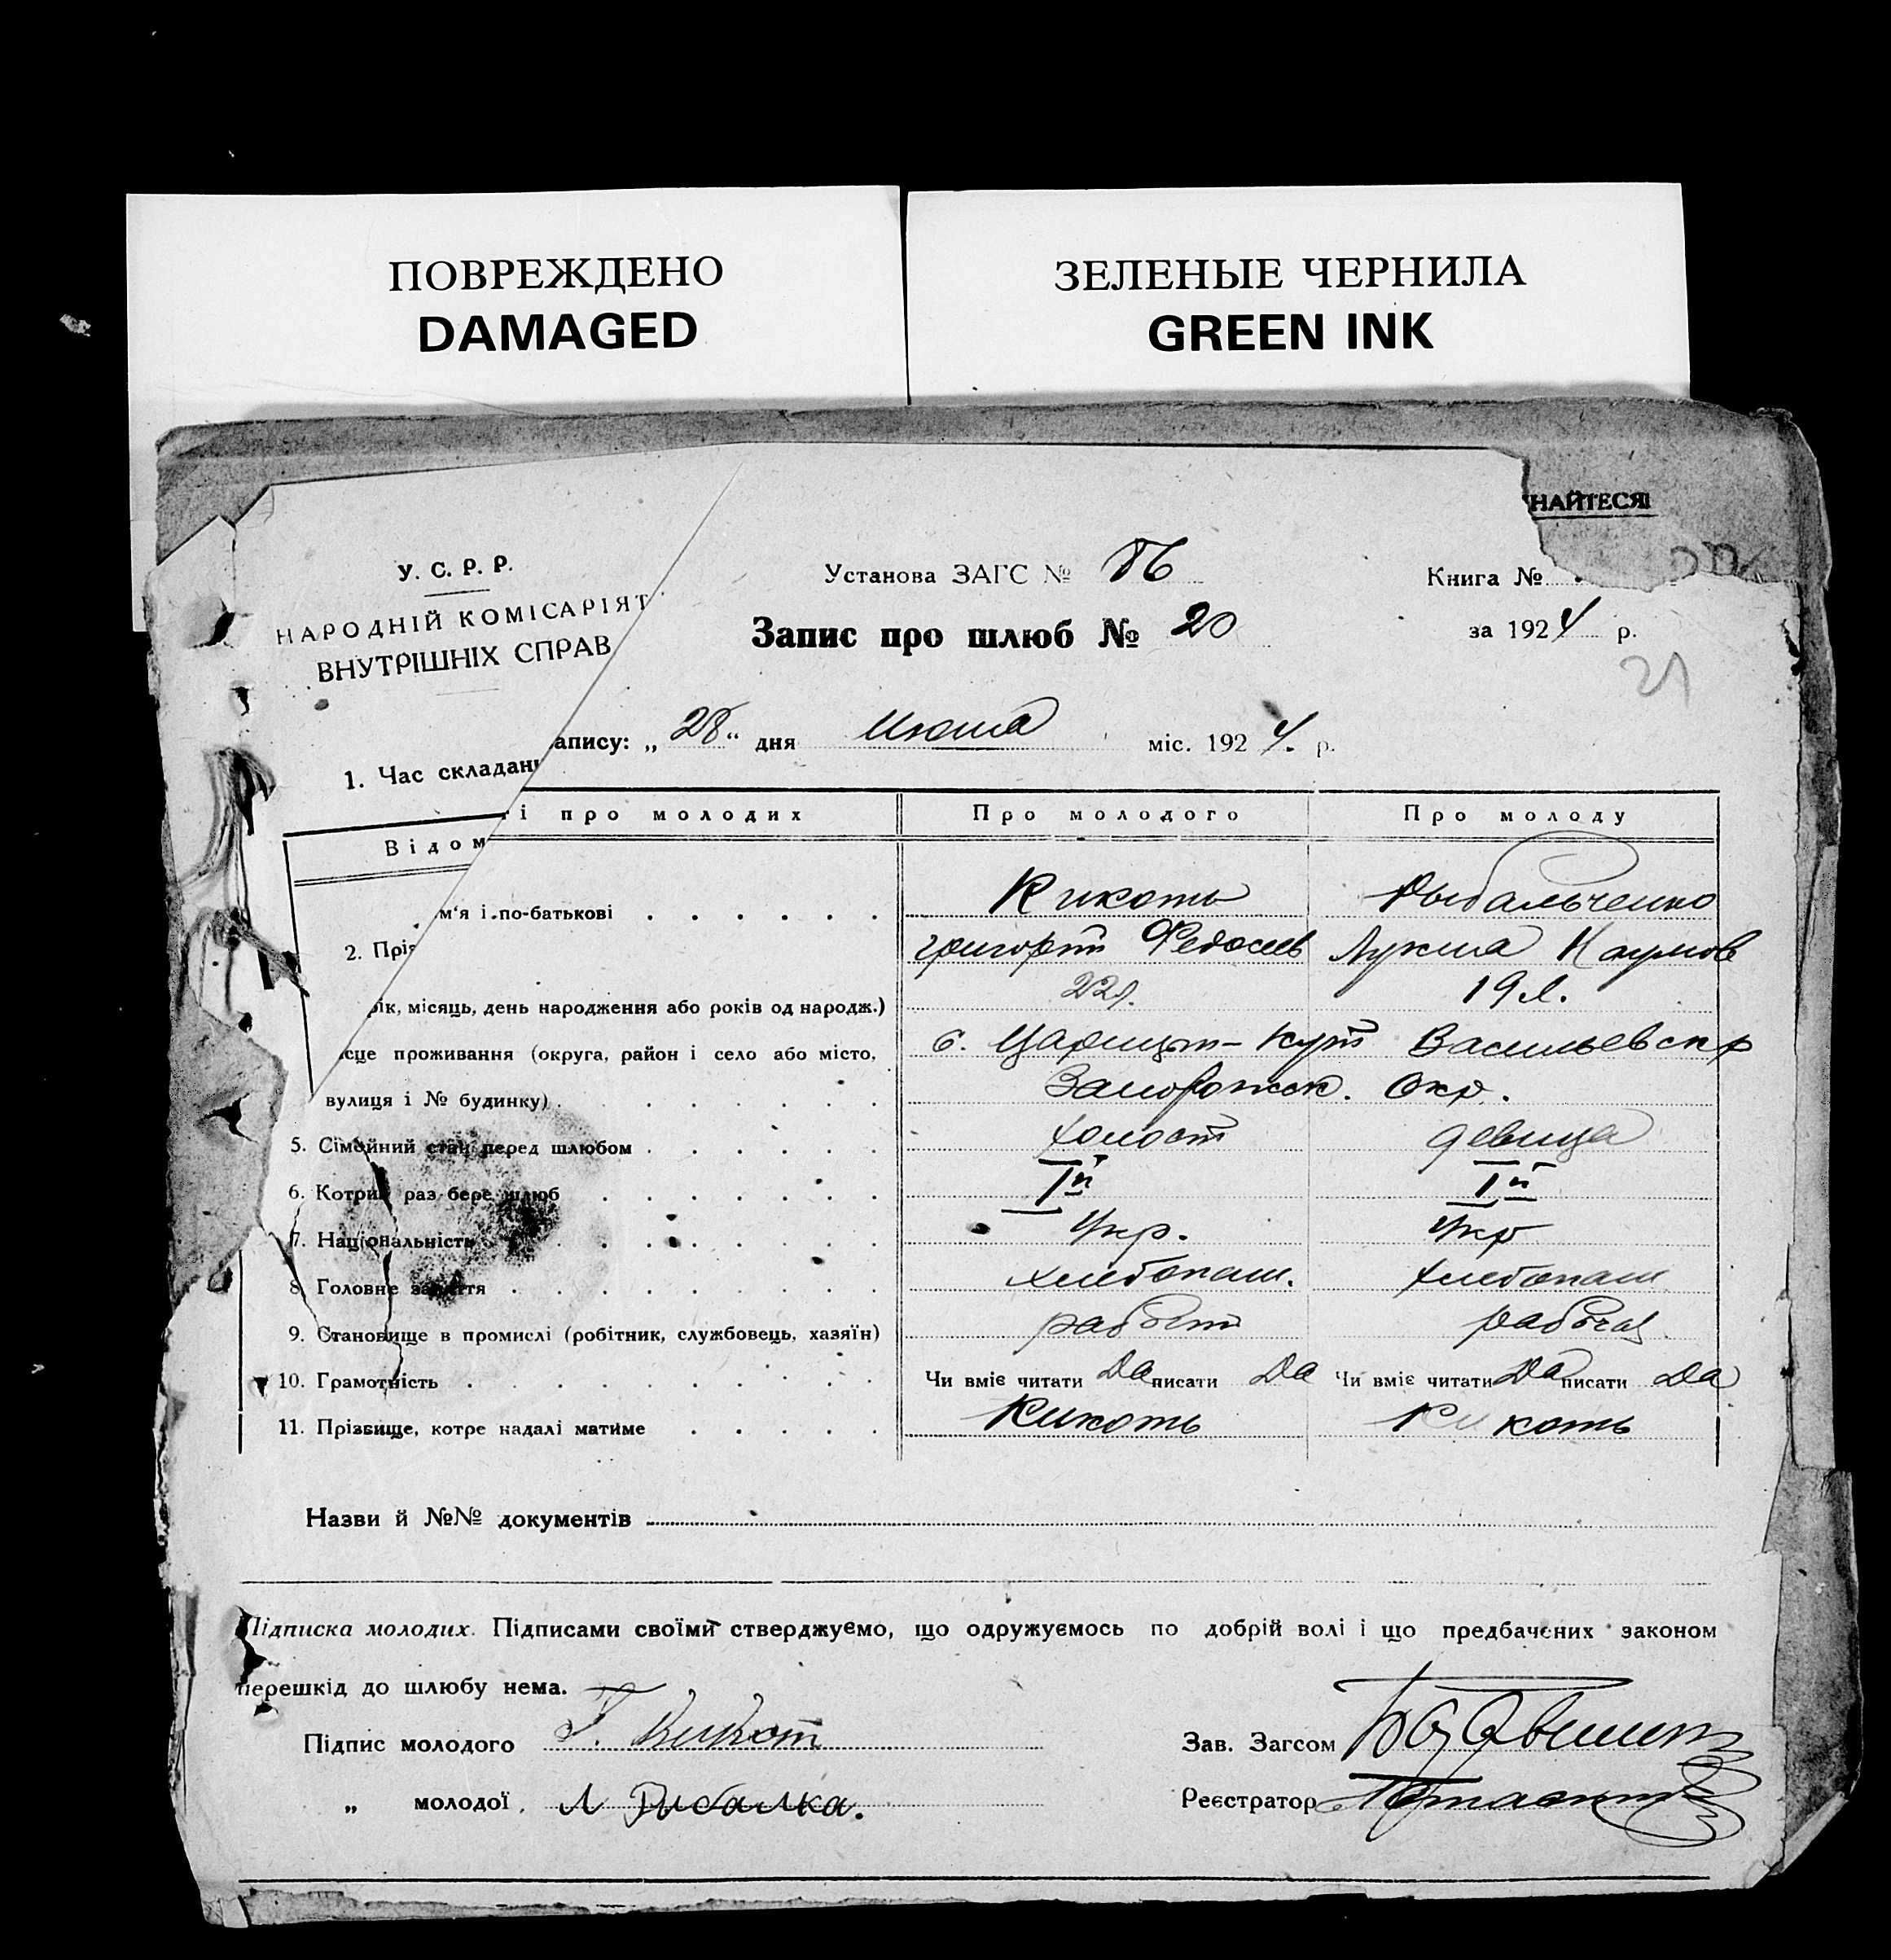 ПОВРЕЖДЕНО
DAMAGED
ЗЕЛЕНЫЕ ЧЕРНИЛА
GREEN INK
НАЙТЕСЯ!
У. С. Р. Р.
НАРОДНІЙ КОМІСАРІЯТ
ВНУТРІШНІХ СПРАВ
Установа ЗАГС № 86
Книга №
Запис про шлюб № 20
за 1924 р.
21
1. Час складан апису: „28" дня Июня міс. 1924. р.
Відом і про молодих Про молодого Про молоду
м'я і по-батькові Кикоть Рыбальченко
2. Пріз Григорий Федосеев Лукия Наумов
рік, місяць, день народження або років од народж.) 22л. 19 л.
сце проживання (округа, район і село або місто, с. Царицын-Кут Васильевск р
вулиця і № будинку) Запорожск. Окр.
5. Сімейний стан перед шлюбом холост девица
6. Котрий раз бере шлюб Iй Iй
7. Національність Укр. Укр
8. Головне заняття хлебопаш. хлебопаш
9. Становище в промислі (робітник, службовець, хазяїн) рабочая
10. Грамотність Чи вміє читати Да писати Да Чи вміє читати Да писати Да
11. Прізвище, котре надалі матиме Кикоть Кикоть
Назви й №№ документів
Підписка молодих. Підписами своїми стверджуємо, що одружуємось по добрій волі і що предбачених законом
перешкід до шлюбу нема.
Підпис молодого Г. Кикот
Зав. Загсом
„ молодої Л Рыбалка.
Реєстратор